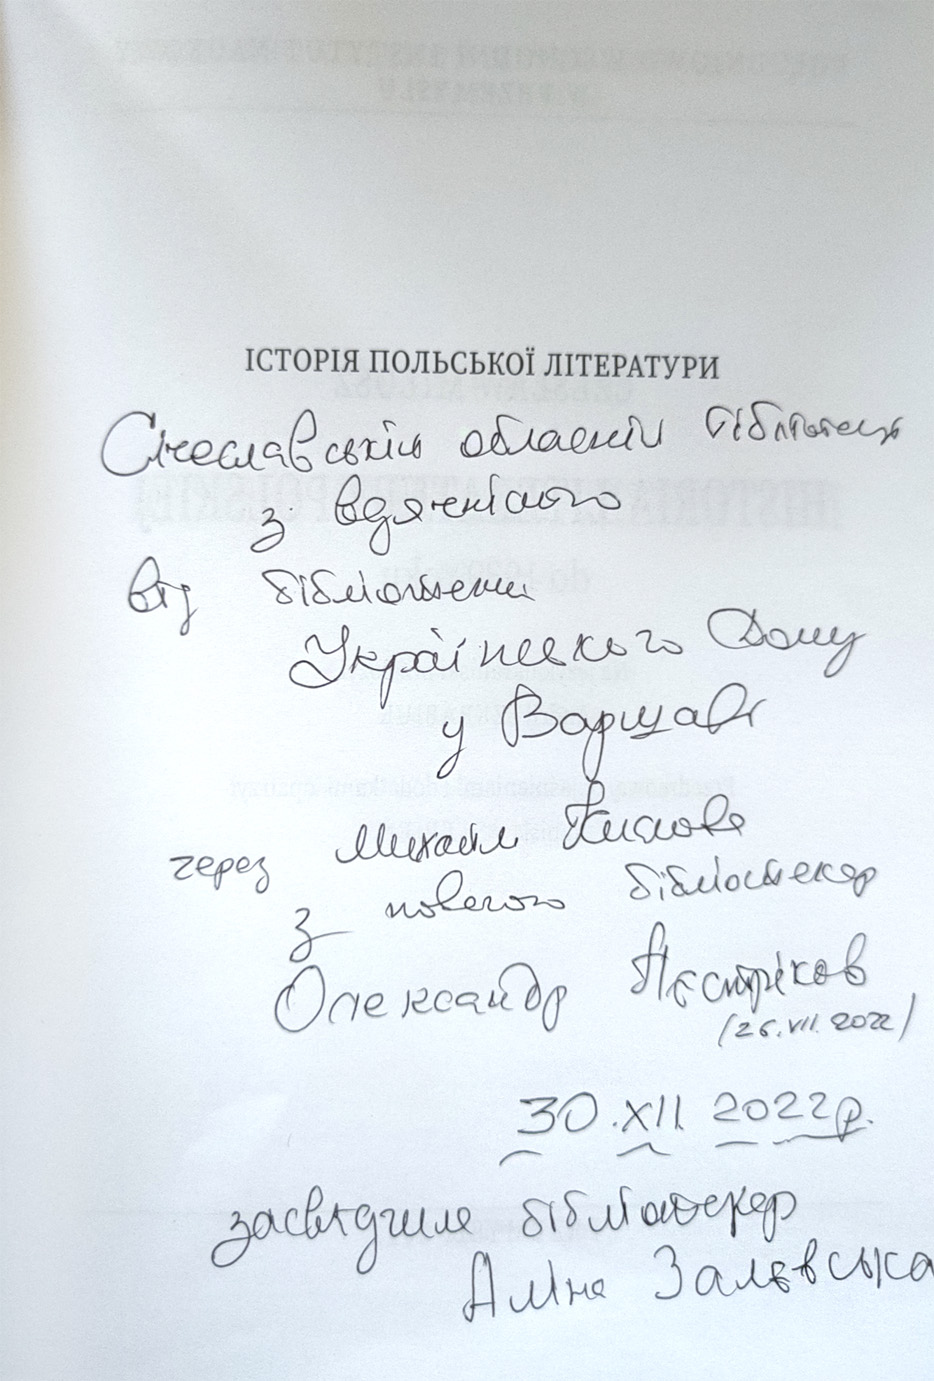 ІСТОРІЯ ПОЛЬСЬКОЇ ЛІТЕРАТУРИ
обласній бібліотеці
з вдячністю
від бібліотеки
Українського Дому
у Варшаві
через Михайла
з повагою бібліотекар
Олександр
(26.VII.2022)
30.XII.2022р.
засвідчила бібліотекар
Аліна Залєвська